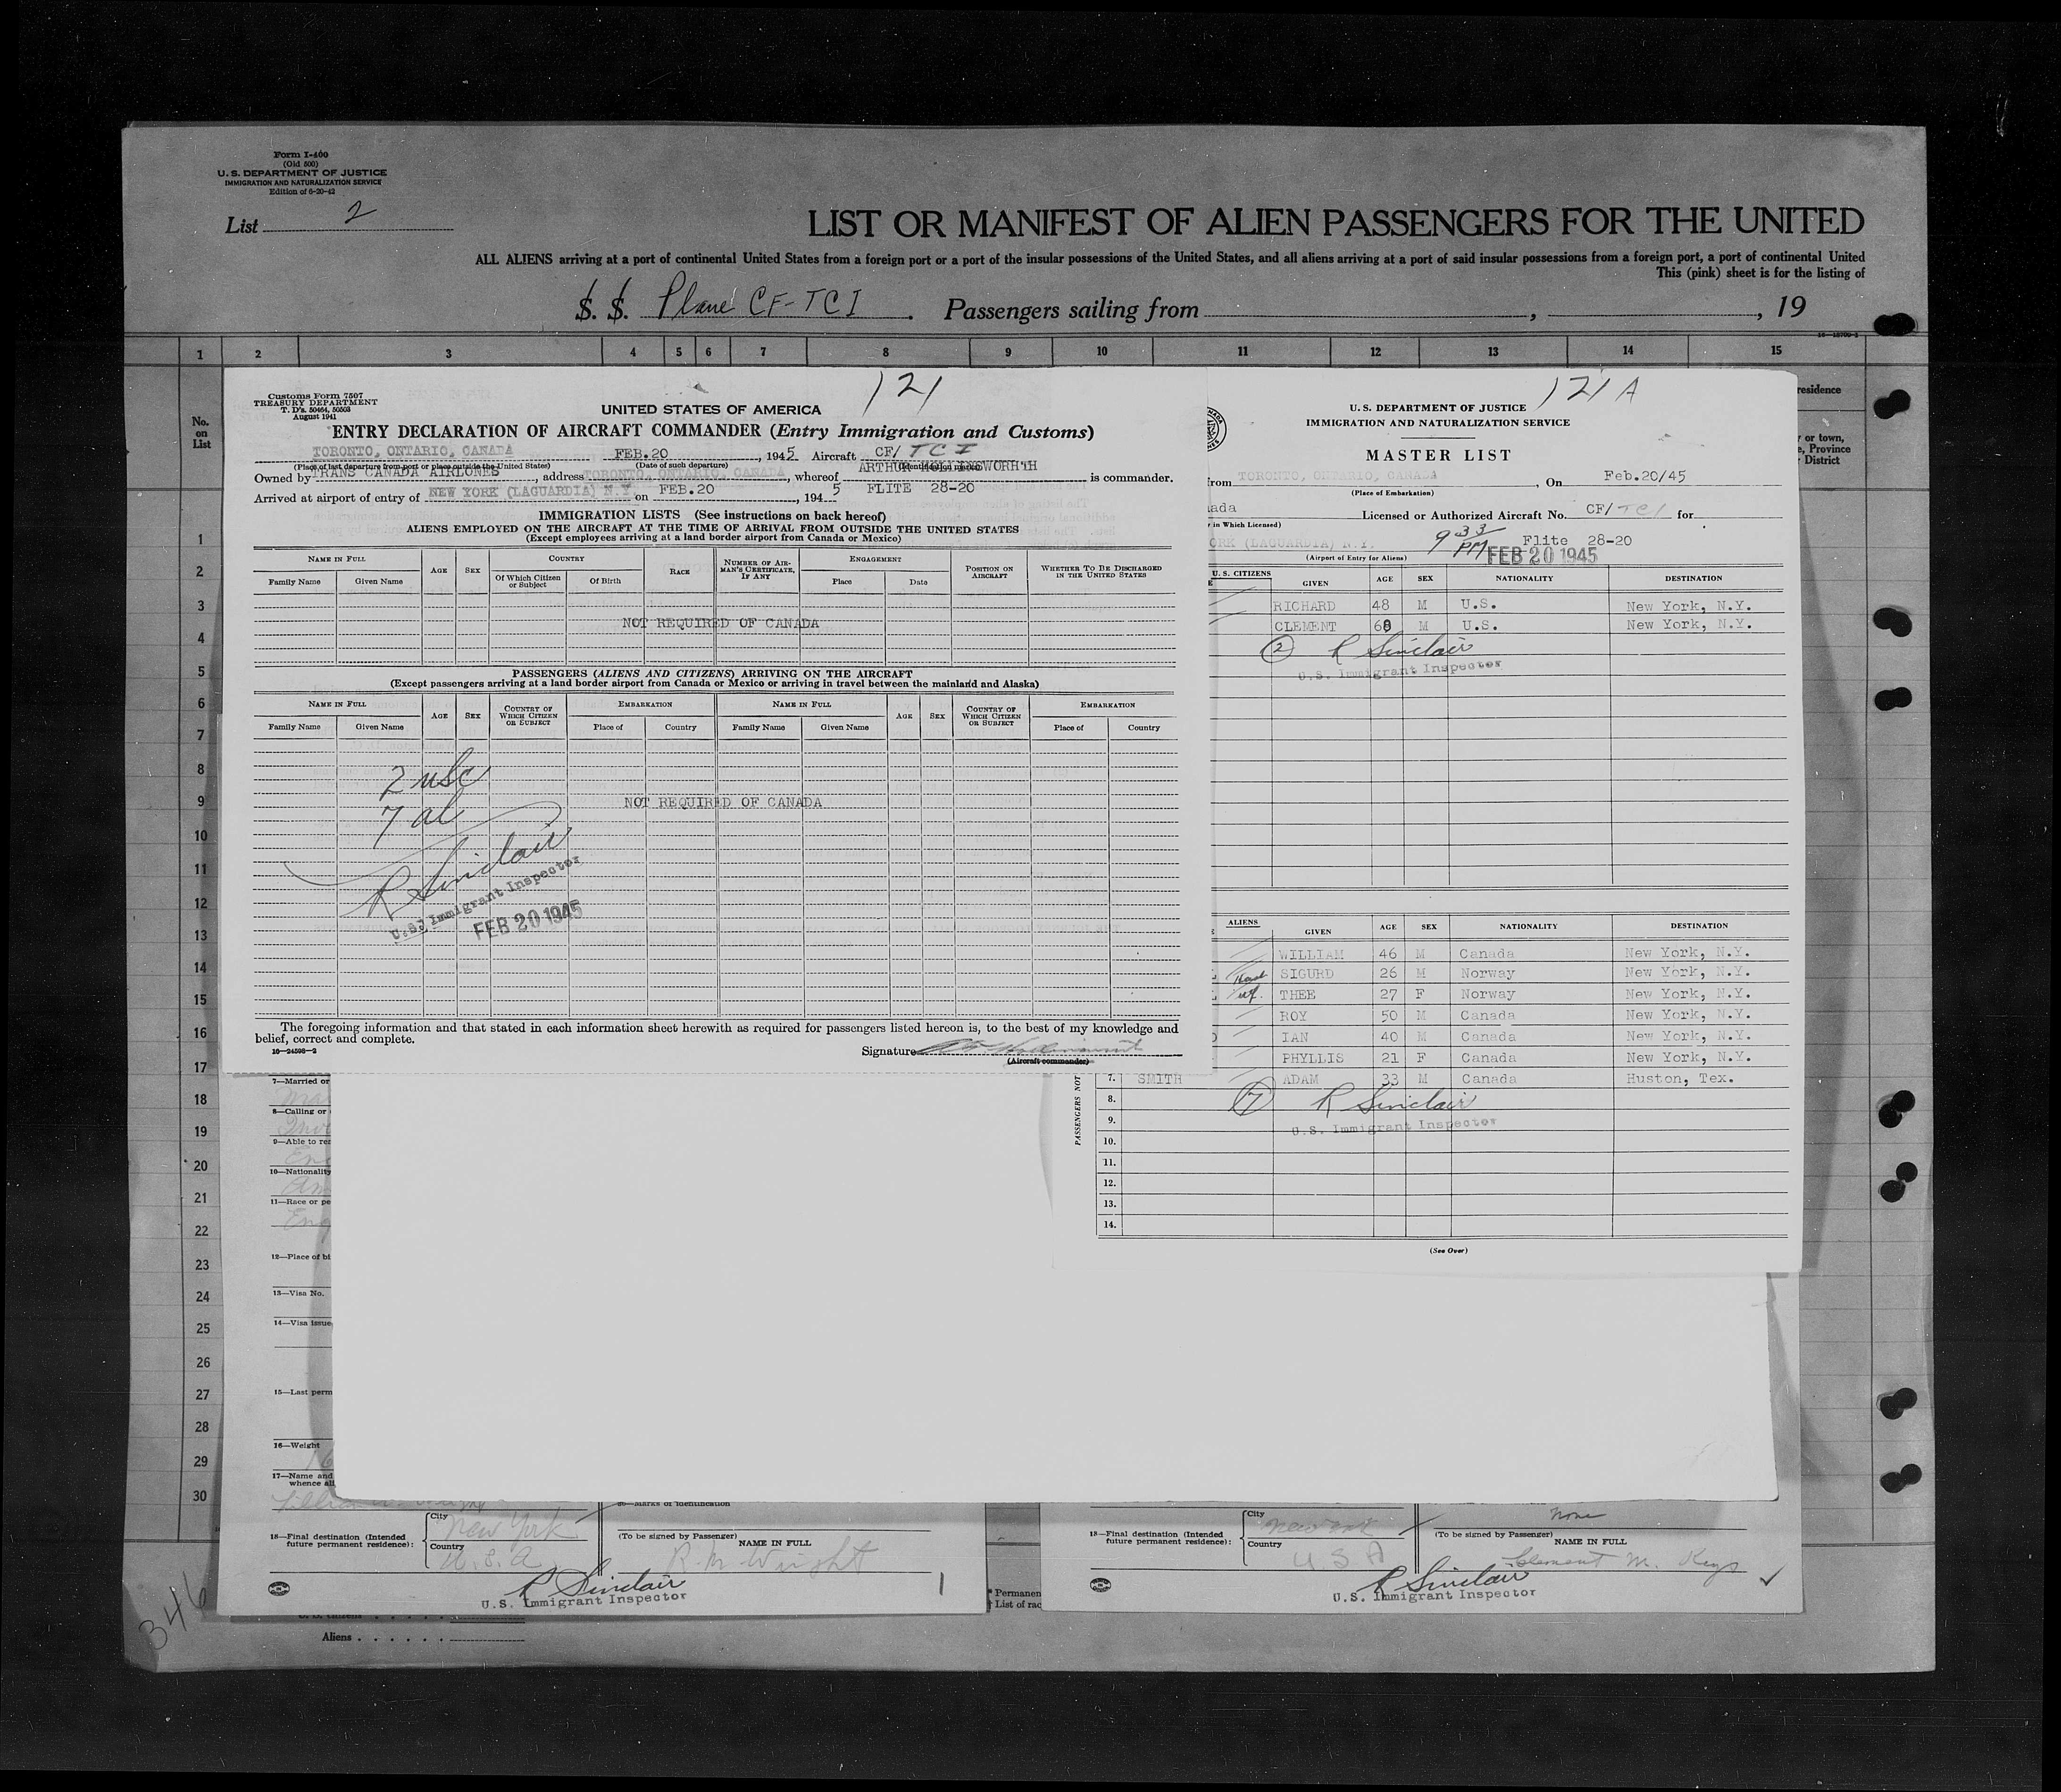 Form I-400
(Old 500)
U. S. DEPARTMENT OF JUSTICE
IMMIGRATION AND NATURALIZATION SERVICE
Edition of 6-20-42
List 2
LIST OR MANIFEST OF ALIEN PASSENGERS FOR THE UNITED
ALL ALIENS arriving at a port of continental United States from a foreign port or a port of the insular possessions of the United States, and all aliens arriving at a port of said insular possessions from a foreign port, a port of continental United
This (pink) sheet is for the listing of
S. S. Plane CF-TCI. Passengers sailing from , , 19
1 2 3 4 5 6 7 8 9 10 11 12 13 14 15
No. on List
residence
or town,
e, Province
District
1
2
3
4
5
6
7
8
9
10
11
12
13
14
15
16
17
18
19
20
21
22
23
24
25
26
27
28
29
30
Customs Form 7507
TREASURY DEPARTMENT
T. D's. 50464, 50503
August 1941
121
UNITED STATES OF AMERICA
ENTRY DECLARATION OF AIRCRAFT COMMANDER (Entry Immigration and Customs)
TORONTO, ONTARIO, CANADA FEB.20, 1945 Aircraft CF/TCI
(Place of last departure from port or place outside the United States) (Date of such departure) (Identification marks)
Owned by TRANS CANADA AIRLONES, address TORONTO, ONTARIO, CANADA, whereof ARTHUR is commander.
Arrived at airport of entry of NEW YORK (LAGUARDIA) N.Y. on FEB.20, 1945 FLITE 28-20
IMMIGRATION LISTS (See instructions on back hereof)
ALIENS EMPLOYED ON THE AIRCRAFT AT THE TIME OF ARRIVAL FROM OUTSIDE THE UNITED STATES
(Except employees arriving at a land border airport from Canada or Mexico)
NAME IN FULL AGE SEX COUNTRY RACE NUMBER OF AIRMAN'S CERTIFICATE, IF ANY ENGAGEMENT POSITION ON AIRCRAFT WHETHER TO BE DISCHARGED IN THE UNITED STATES
Family Name Given Name Of Which Citizen or Subject Of Birth Place Date
NOT REQUIRED OF CANADA
PASSENGERS (ALIENS AND CITIZENS) ARRIVING ON THE AIRCRAFT
(Except passengers arriving at a land border airport from Canada or Mexico or arriving in travel between the mainland and Alaska)
NAME IN FULL AGE SEX COUNTRY OF WHICH CITIZEN OR SUBJECT EMBARKATION NAME IN FULL AGE SEX COUNTRY OF WHICH CITIZEN OR SUBJECT EMBARKATION
Family Name Given Name Place of Country Family Name Given Name Place of Country
2 usc
7 al
NOT REQUIRED OF CANADA
R Sinclair
U.S. Immigrant Inspector
FEB 20 1945
The foregoing information and that stated in each information sheet herewith as required for passengers listed hereon is, to the best of my knowledge and
belief, correct and complete.
16-24598-2
Signature
(Aircraft commander)
121A
U. S. DEPARTMENT OF JUSTICE
IMMIGRATION AND NATURALIZATION SERVICE
MASTER LIST
from TORONTO, ONTARIO, CANADA, On Feb.20/45
(Place of Embarkation)
ada Licensed or Authorized Aircraft No. CF/TCI for
in Which Licensed)
ORK (LAGUARDIA) N.Y. 9 33 PM Flite 28-20
(Airport of Entry for Aliens) FEB 20 1945
U. S. CITIZENS GIVEN AGE SEX NATIONALITY DESTINATION
RICHARD 48 M U.S. New York, N.Y.
CLEMENT 68 M U.S. New York, N.Y.
2 R Sinclair
U.S. Immigrant Inspector
ALIENS GIVEN AGE SEX NATIONALITY DESTINATION
WILLIAM 46 M Canada New York, N.Y.
SIGURD 26 M Norway New York, N.Y.
THEE 27 F Norway New York, N.Y.
ROY 50 M Canada New York, N.Y.
IAN 40 M Canada New York, N.Y.
PHYLLIS 21 F Canada New York, N.Y.
7. SMITH ADAM 33 M Canada Huston, Tex.
8. 7 R Sinclair
9. U.S. Immigrant Inspector
10.
11.
12.
13.
14.
PASSENGERS NOT
(See Over)
7—Married or
8—Calling or
9—Able to rea
10—Nationality
11—Race or pe
12—Place of bi
13—Visa No.
14—Visa issue
15—Last perm
16—Weight
17—Name and
whence ali
18—Final destination (Intended future permanent residence): City New York
Country U.S.A.
36—Marks of identification
(To be signed by Passenger)
NAME IN FULL
R. M. Wright
R Sinclair
U.S. Immigrant Inspector
1
Aliens
* Permanen
† List of rac
18—Final destination (Intended future permanent residence): City New York
Country U S A
None
(To be signed by Passenger)
NAME IN FULL
Clement M. Keys
R Sinclair
U.S. Immigrant Inspector
346